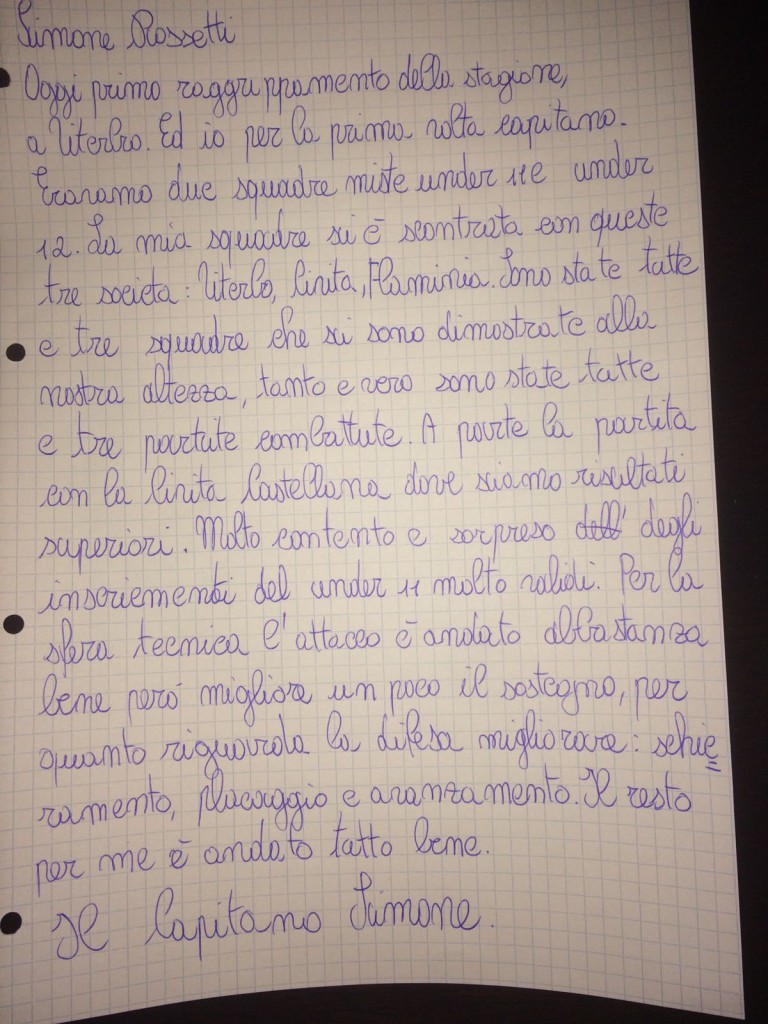 Simone Rossetti
Oggi primo raggruppamento della stagione,
a Viterbo. Ed io per la prima volta capitano.
Eravamo due squadre miste under 11 e under
12. La mia squadra si è scontrata con queste
tre societa: Viterbo, Civita, Flaminia. Sono state tutte
e tre squadre che si sono dimostrate alla
nostra altezza, tanto e vero sono state tutte
e tre partute combattute. A parte la partita
con la Civita Castellana dove siamo risultati
superiori. Molto contento e sorpreso dell' degli
inseriementi del under 11 molto validi. Per la
sfera tecnica l'attacco è andato abbastanza
bene però migliore un poco il sostegno, per
quanto riguarda la difesa migliorare: schie=
ramento, placaggio e avanzamento. Il resto
per me è andato tutto bene.
Il Capitano Simone.